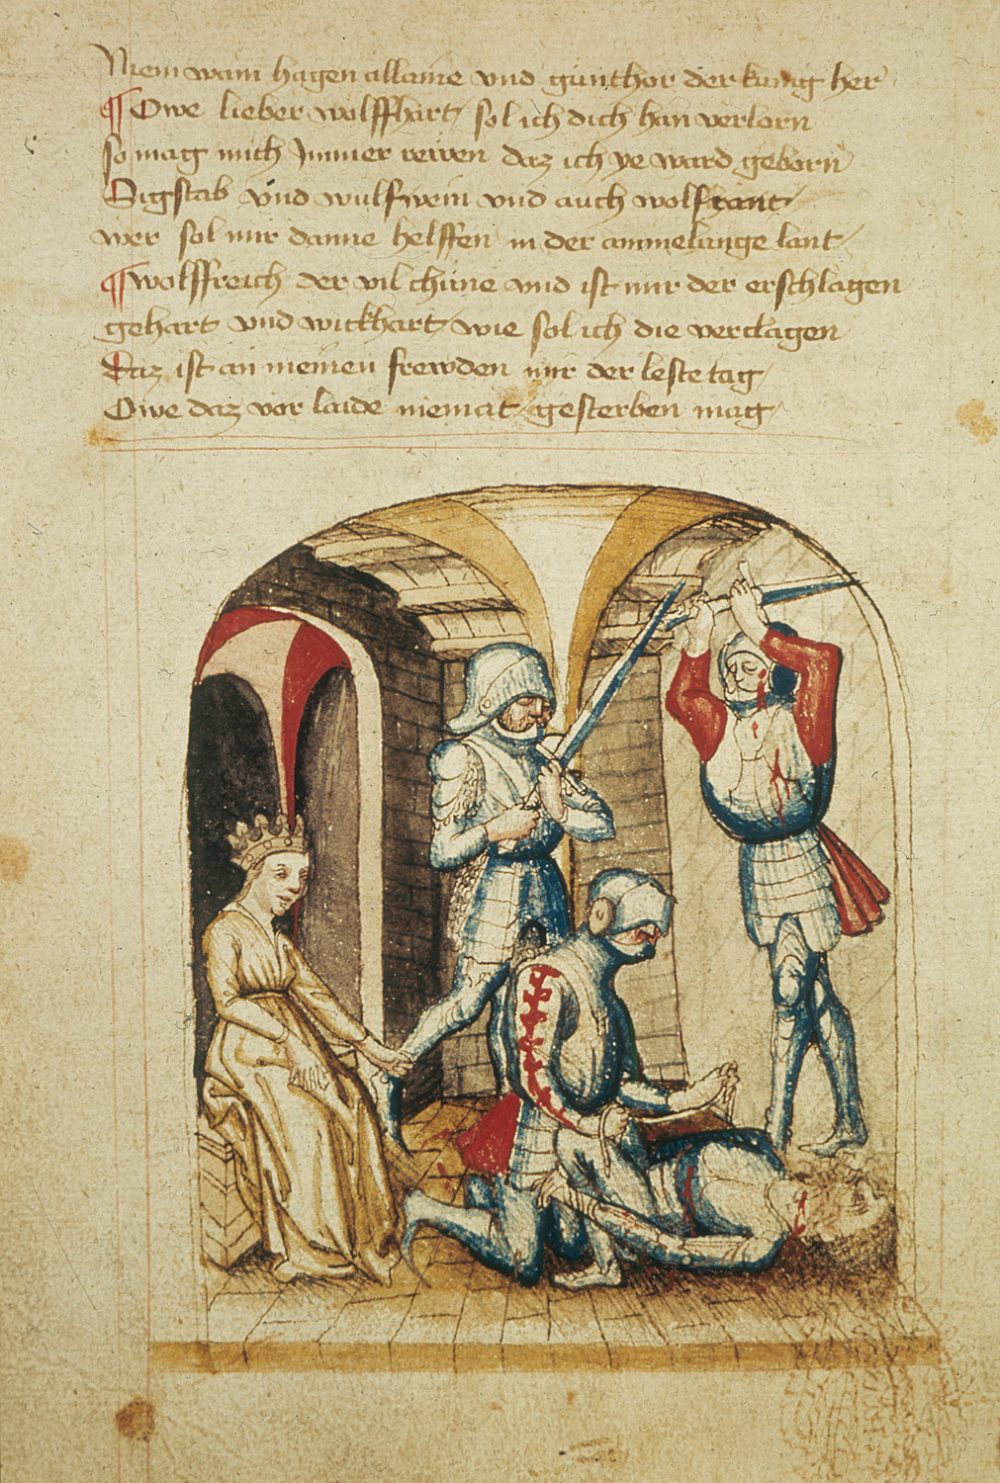 Niem wann hagen allaine vnd günthor der künig her
Owe lieber wolffhart sol ich dich han verlorn
so mag mich Jmmer rewen daz ich ye ward geborn
Sigstab vnd wulfwein vnd auch wolfrant
wer sol mir danne helffen in der ammelunge lant
wolffreich der vil chüne vnd ist mir der erschlagen
gehart vnd wickhart wie sol ich die verclagen
Daz ist an meinen frewden mir der leste tag
Owe daz vor laide niemat gesterben mag